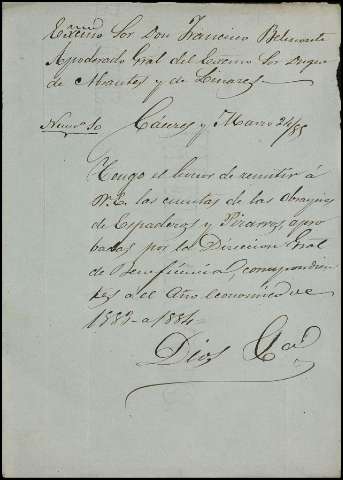 Excmo Sor Don Francisco Belmonte
Apoderado Gral del Excmo Sor Duque
de Abrantes y de Linares
Numo 50 Cáceres y Marzo 24/85
Tengo el honor de remitir á
V.E. las cuentas de las Obras pias
de Espaderos y Pizarros, apro
badas por la Direccion Gral
de Beneficencia, correspondien
tes a el Año economico de
1883 a 1884
Dios Gue